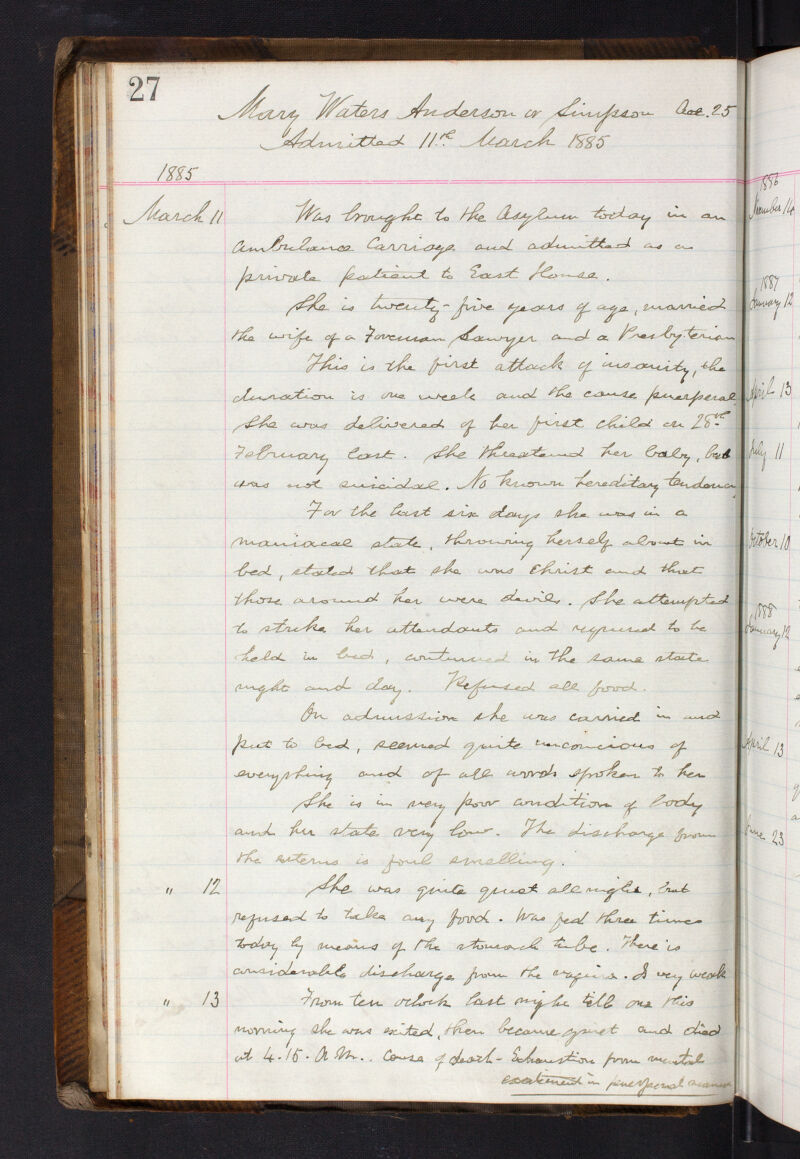 27
Mary Waters Anderson or Simpson Aae. 25
Admitted 11th March 1885
1885
March 11 Was brought to the Asylum today in an
ambulance Carriage and admitted as a
private patient to East House.
She is twenty-five years of age, married
the wife of a Foreman Sawyer and a Presbyterian
This is the first attack of insanity, the
duration is one week and the cause puerperal
She was delivered of her first child on 28th
February last. She threatened her baby, but
was not suicidal. No known hereditary tendency
For the last six days she was in a
maniacal state, throwing herself about in
bed, stated that she was Christ and that
those around her were devils. She attempted
to strike her attendants and required to be
held in bed, continued in the same state
night and day. Refused all food.
On admission she was carried in and
put to bed, seemed quite unconcious of
everything and of all words spoken to her
She is in very poor condition of body
and her state very low. The discharge from
the uterus is foul smelling.
" 12 She was quite quiet all night, but
refused to take any food. Was fed three times
today by means of the stomach tube. There is
considerable discharge from the vagina. Is very weak
" 13 From ten oclock last night till one this
morning she was exited, then became quiet and died
at 4.15. A.M.. Cause of death - Exhaustion from mental
excitement in puerperal
1886
November 14
1887
January 12
April 13
July 11
October 10
1888
January 12
April 13
June 23